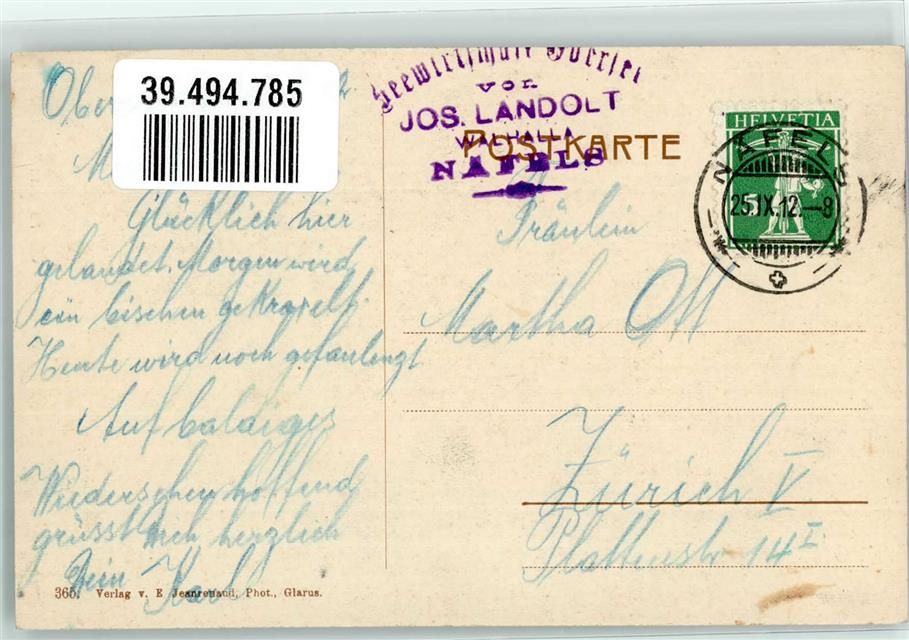 39.494.785
Glücklich hier
gelandet. Morgen wird
ein bischen gekraxelt.
Heute wird noch gefaulenzt
Auf baldiges
Wiedersehen hoffend
grüsst Dich herzlich
Dein Karl
365. Verlag v. E Jeanrenaud, Phot., Glarus.
Seewirtschaft Obersee
von
JOS. LANDOLT
WALHALLA
NÄFELS
POSTKARTE
HELVETIA
5
NÄFELS
25.IX.12.–8
Fräulein
Martha Ott
Zürich V
Plattenstr 14 I